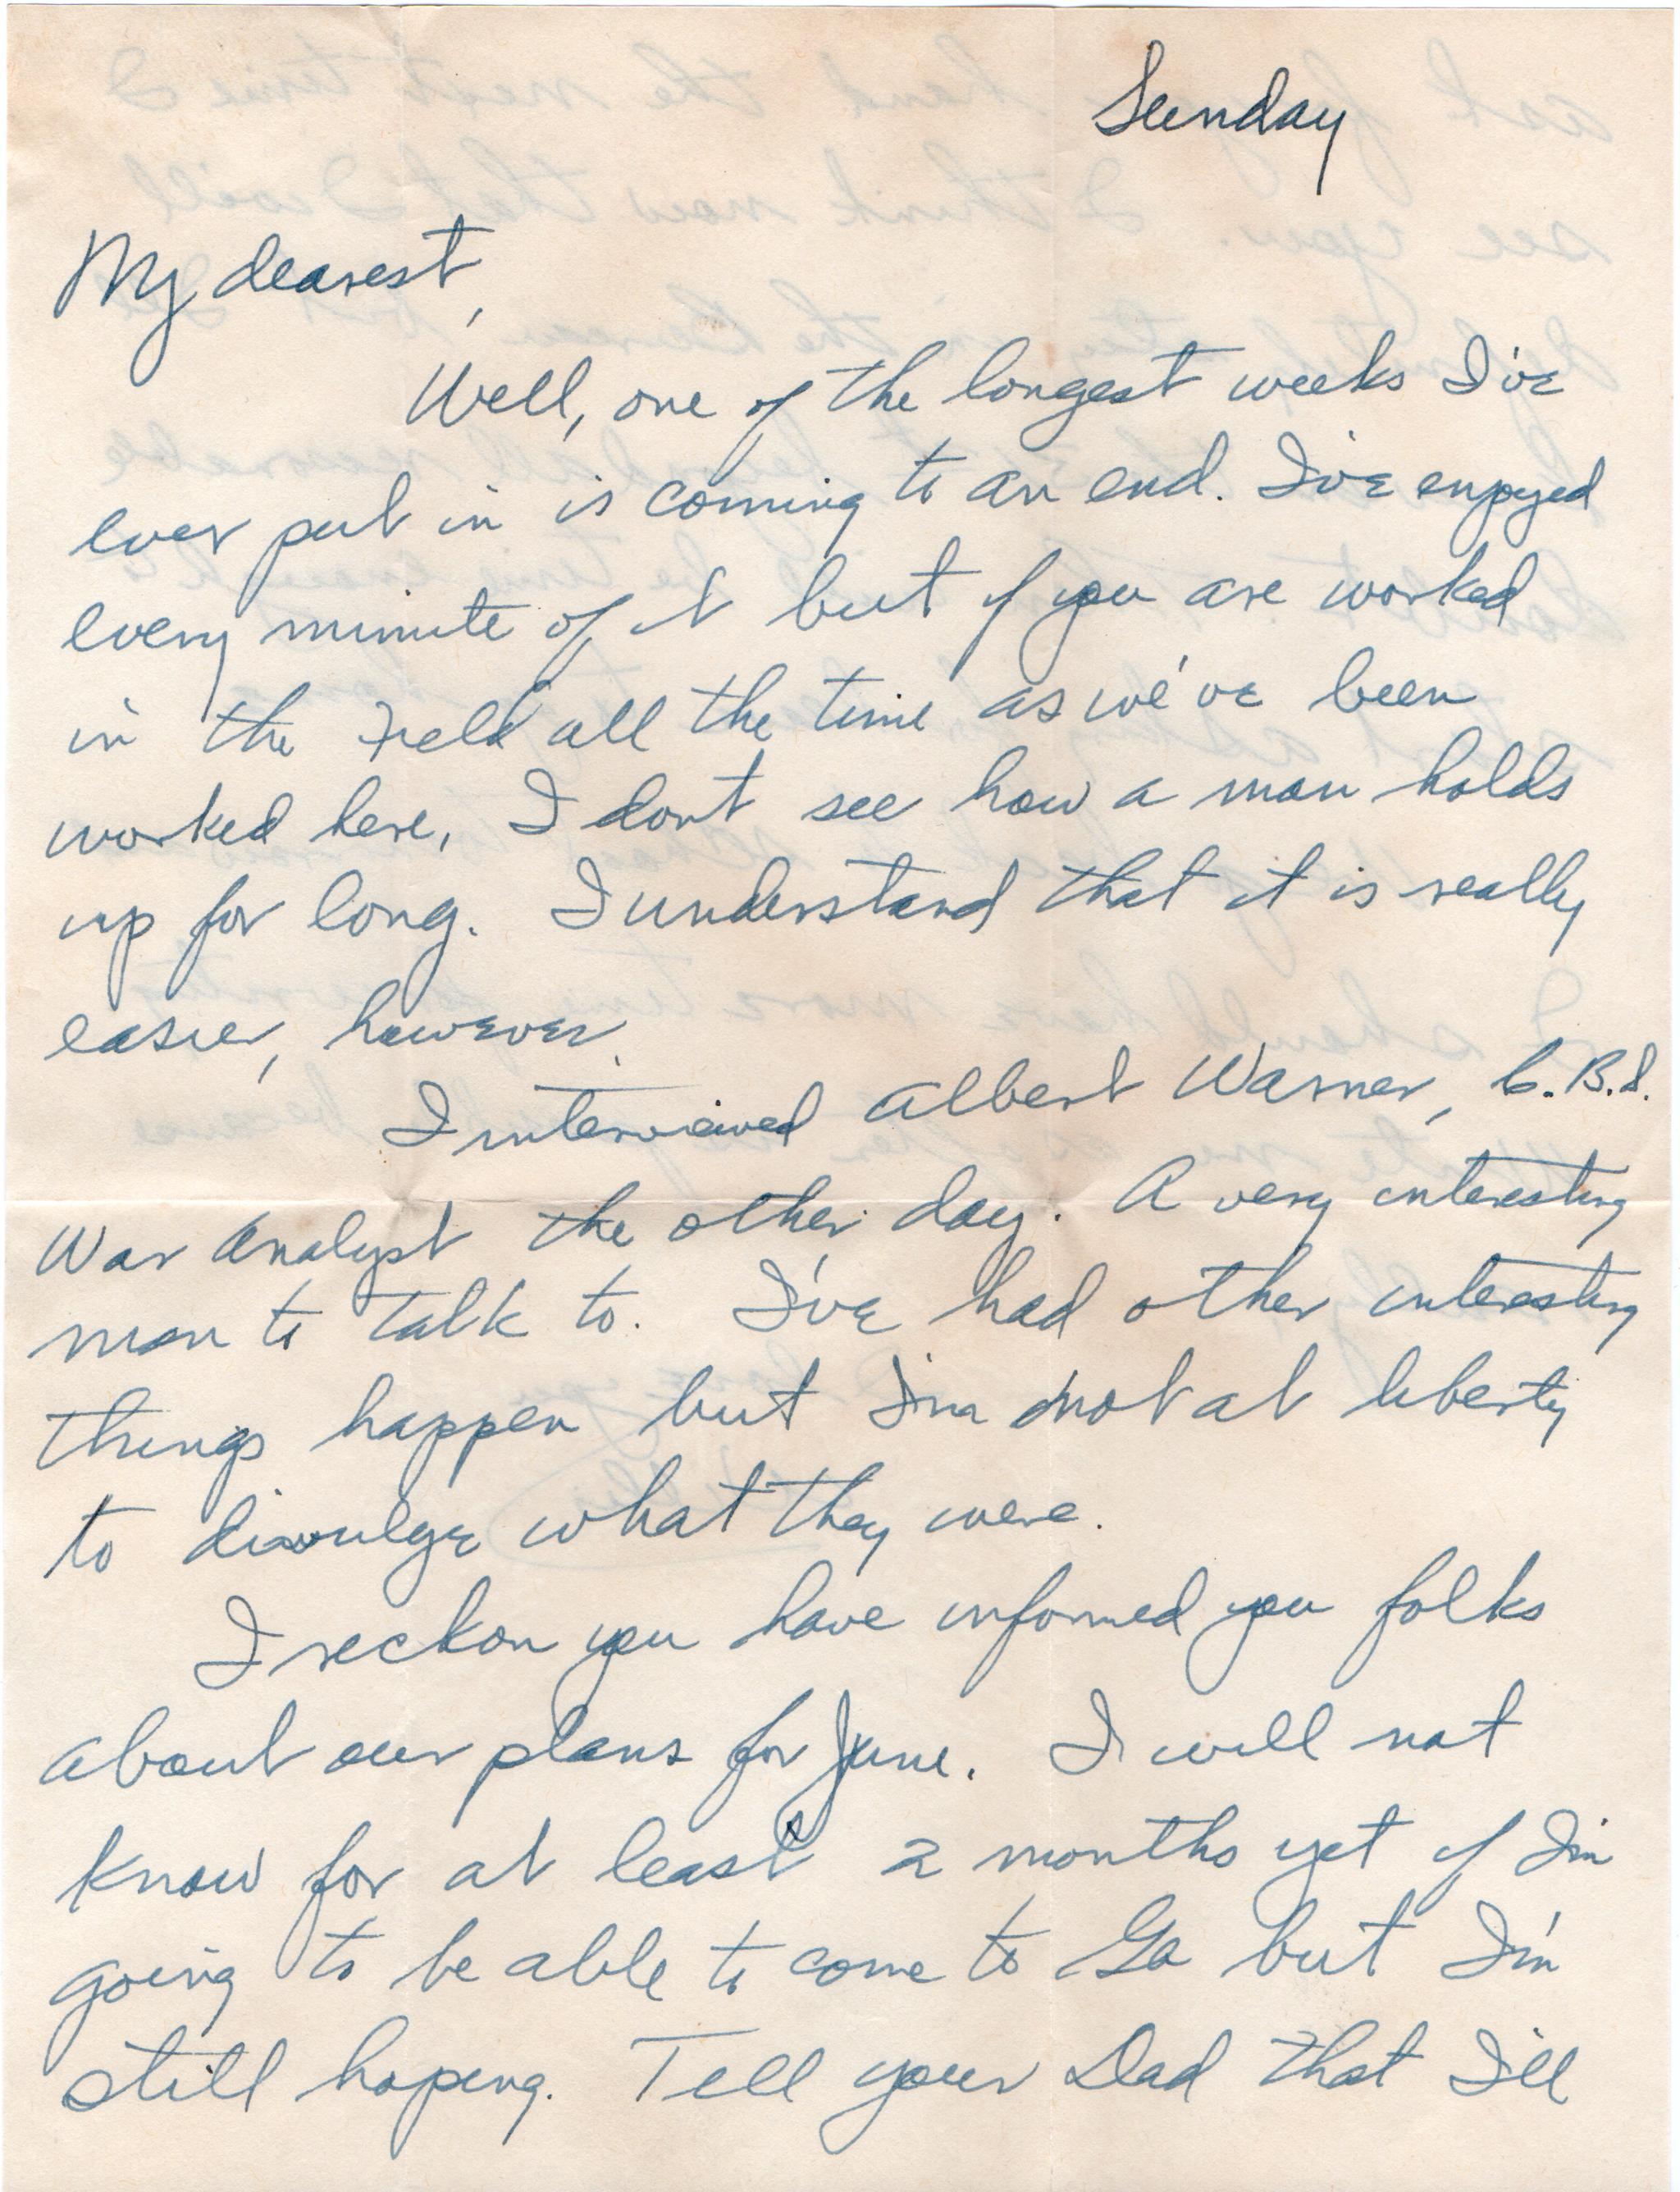 Sunday
My dearest,
Well, one of the longest weeks I've
ever put in is coming to an end. I've enjoyed
every minute of it but if you are worked
in the field all the time as we've been
worked here, I dont see how a man holds
up for long. I understand that it is really
easier, however.
I interviewed Albert Warner, C.B.S.
War Analyst the other day. A very interesting
man to talk to. I've had other interesting
things happen but I'm not at liberty
to divulge what they were.
I reckon you have informed you folks
about our plans for June. I will not
know for at least 2 months yet if I'm
going to be able to come to Ga but I'm
still hoping. Tell your Dad that I'll